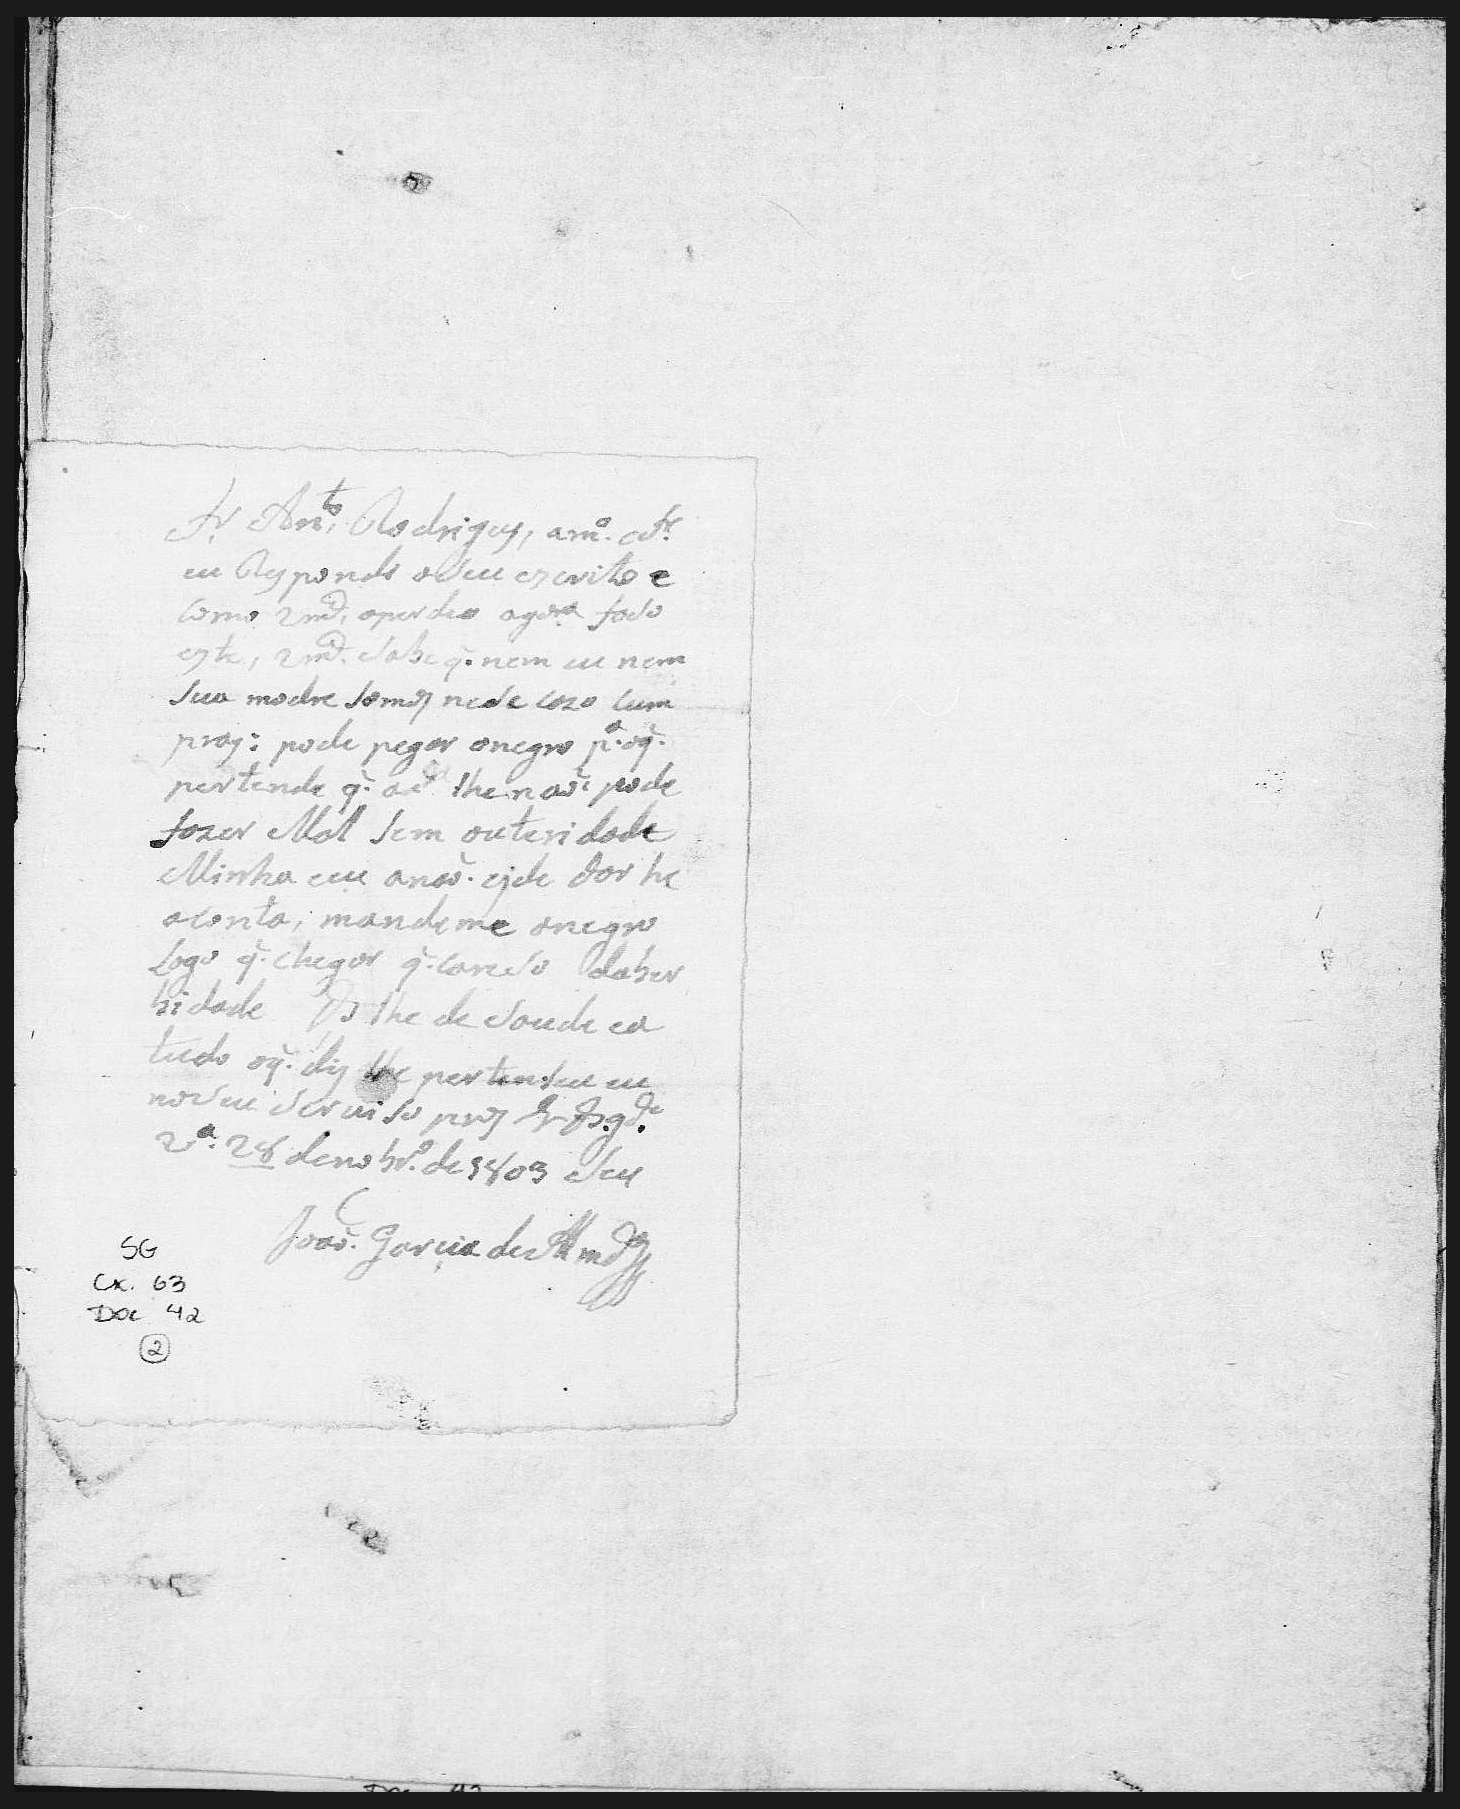 Sr. Antto. Rodrigues, amo. e Sr.
eu Responde o seu escrito e
como vmce. operdeo agora faso
este, vmce. sabe q. nem eu nem
sua madre somos nese cazo cum
pras: pode pegar onegro pa. oq.
pertende q. ael lhe naõ pode
fazer Mal sem outeridade
Minha eeu anaõ. ejde dar he
aconta, mandeme onegro
Logo q. chegar q. careso daber
bidade Ds lhe de saude ea
tudo oq. diz lhe pertenseu eu
noseu servi so pros Gr Ds. gde.
Va. 28 deno bro. de 1803 seu
Joaõ. Garcia de Almda
SG
Cx. 63
Doc 42
2
Doc 42